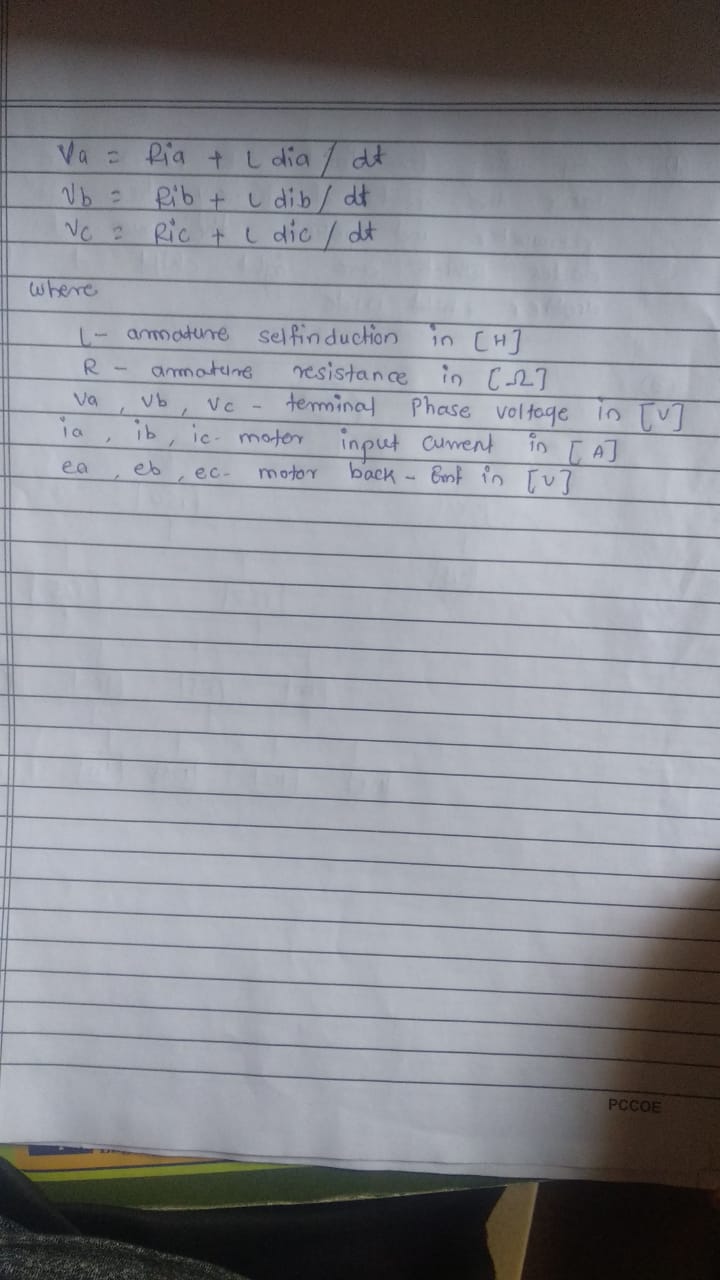 Va = Ria + L dia / dt
Vb = Rib + L dib / dt
Vc = Ric + L dic / dt
where
L - armature selfinduction in [H]
R - armature resistance in [Ω]
Va, Vb, Vc - terminal Phase voltage in [V]
ia, ib, ic - motor input current in [A]
ea, eb, ec - motor back - Emf in [V]
PCCOE